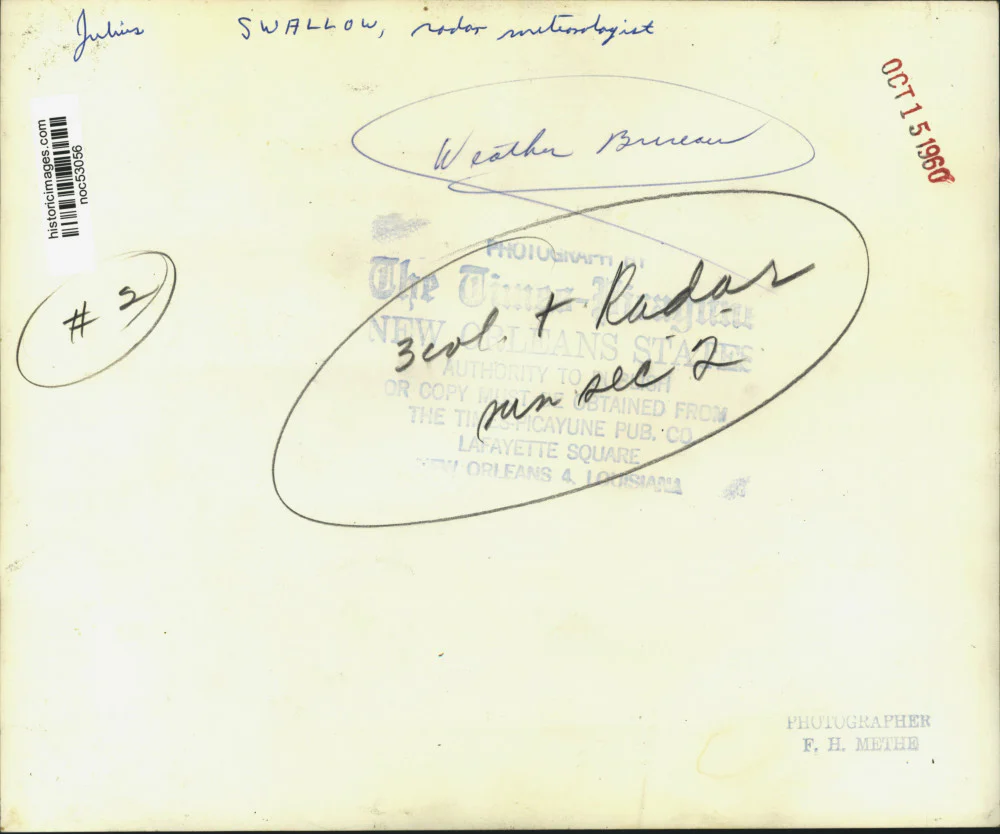 Julius SWALLOW, radar meteorologist
OCT 15 1960
Weather Bureau
historicimages.com
noc53056
# 2
3 col. + Radar
run sec 2
PHOTOGRAPH BY
The Times-Picayune
NEW ORLEANS STATES
AUTHORITY TO PUBLISH
OR COPY MUST BE OBTAINED FROM
THE TIMES-PICAYUNE PUB. CO.
LAFAYETTE SQUARE
NEW ORLEANS 4, LOUISIANA
PHOTOGRAPHER
F. H. METHE